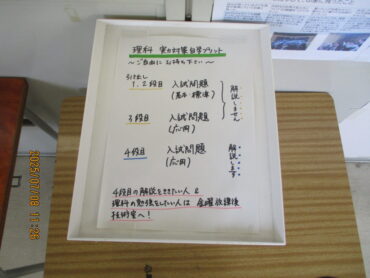 理科 実力対策自学プリント
～ご自由にお持ち下さい～
引き出し
1、2段目 入試問題
(基本・標準)
解説しません
3段目 入試問題
(応用)
4段目 入試問題
(応用)
解説します
4段目の解説をききたい人&
理科の勉強をしたい人は 金曜放課後
技術室へ!
2025/07/08 11:26